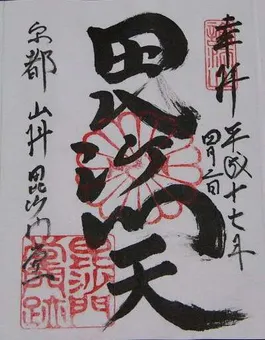 奉拝 平成十七年
四月
毘沙門天
京都 山科 毘沙門堂
毘沙門
堂跡